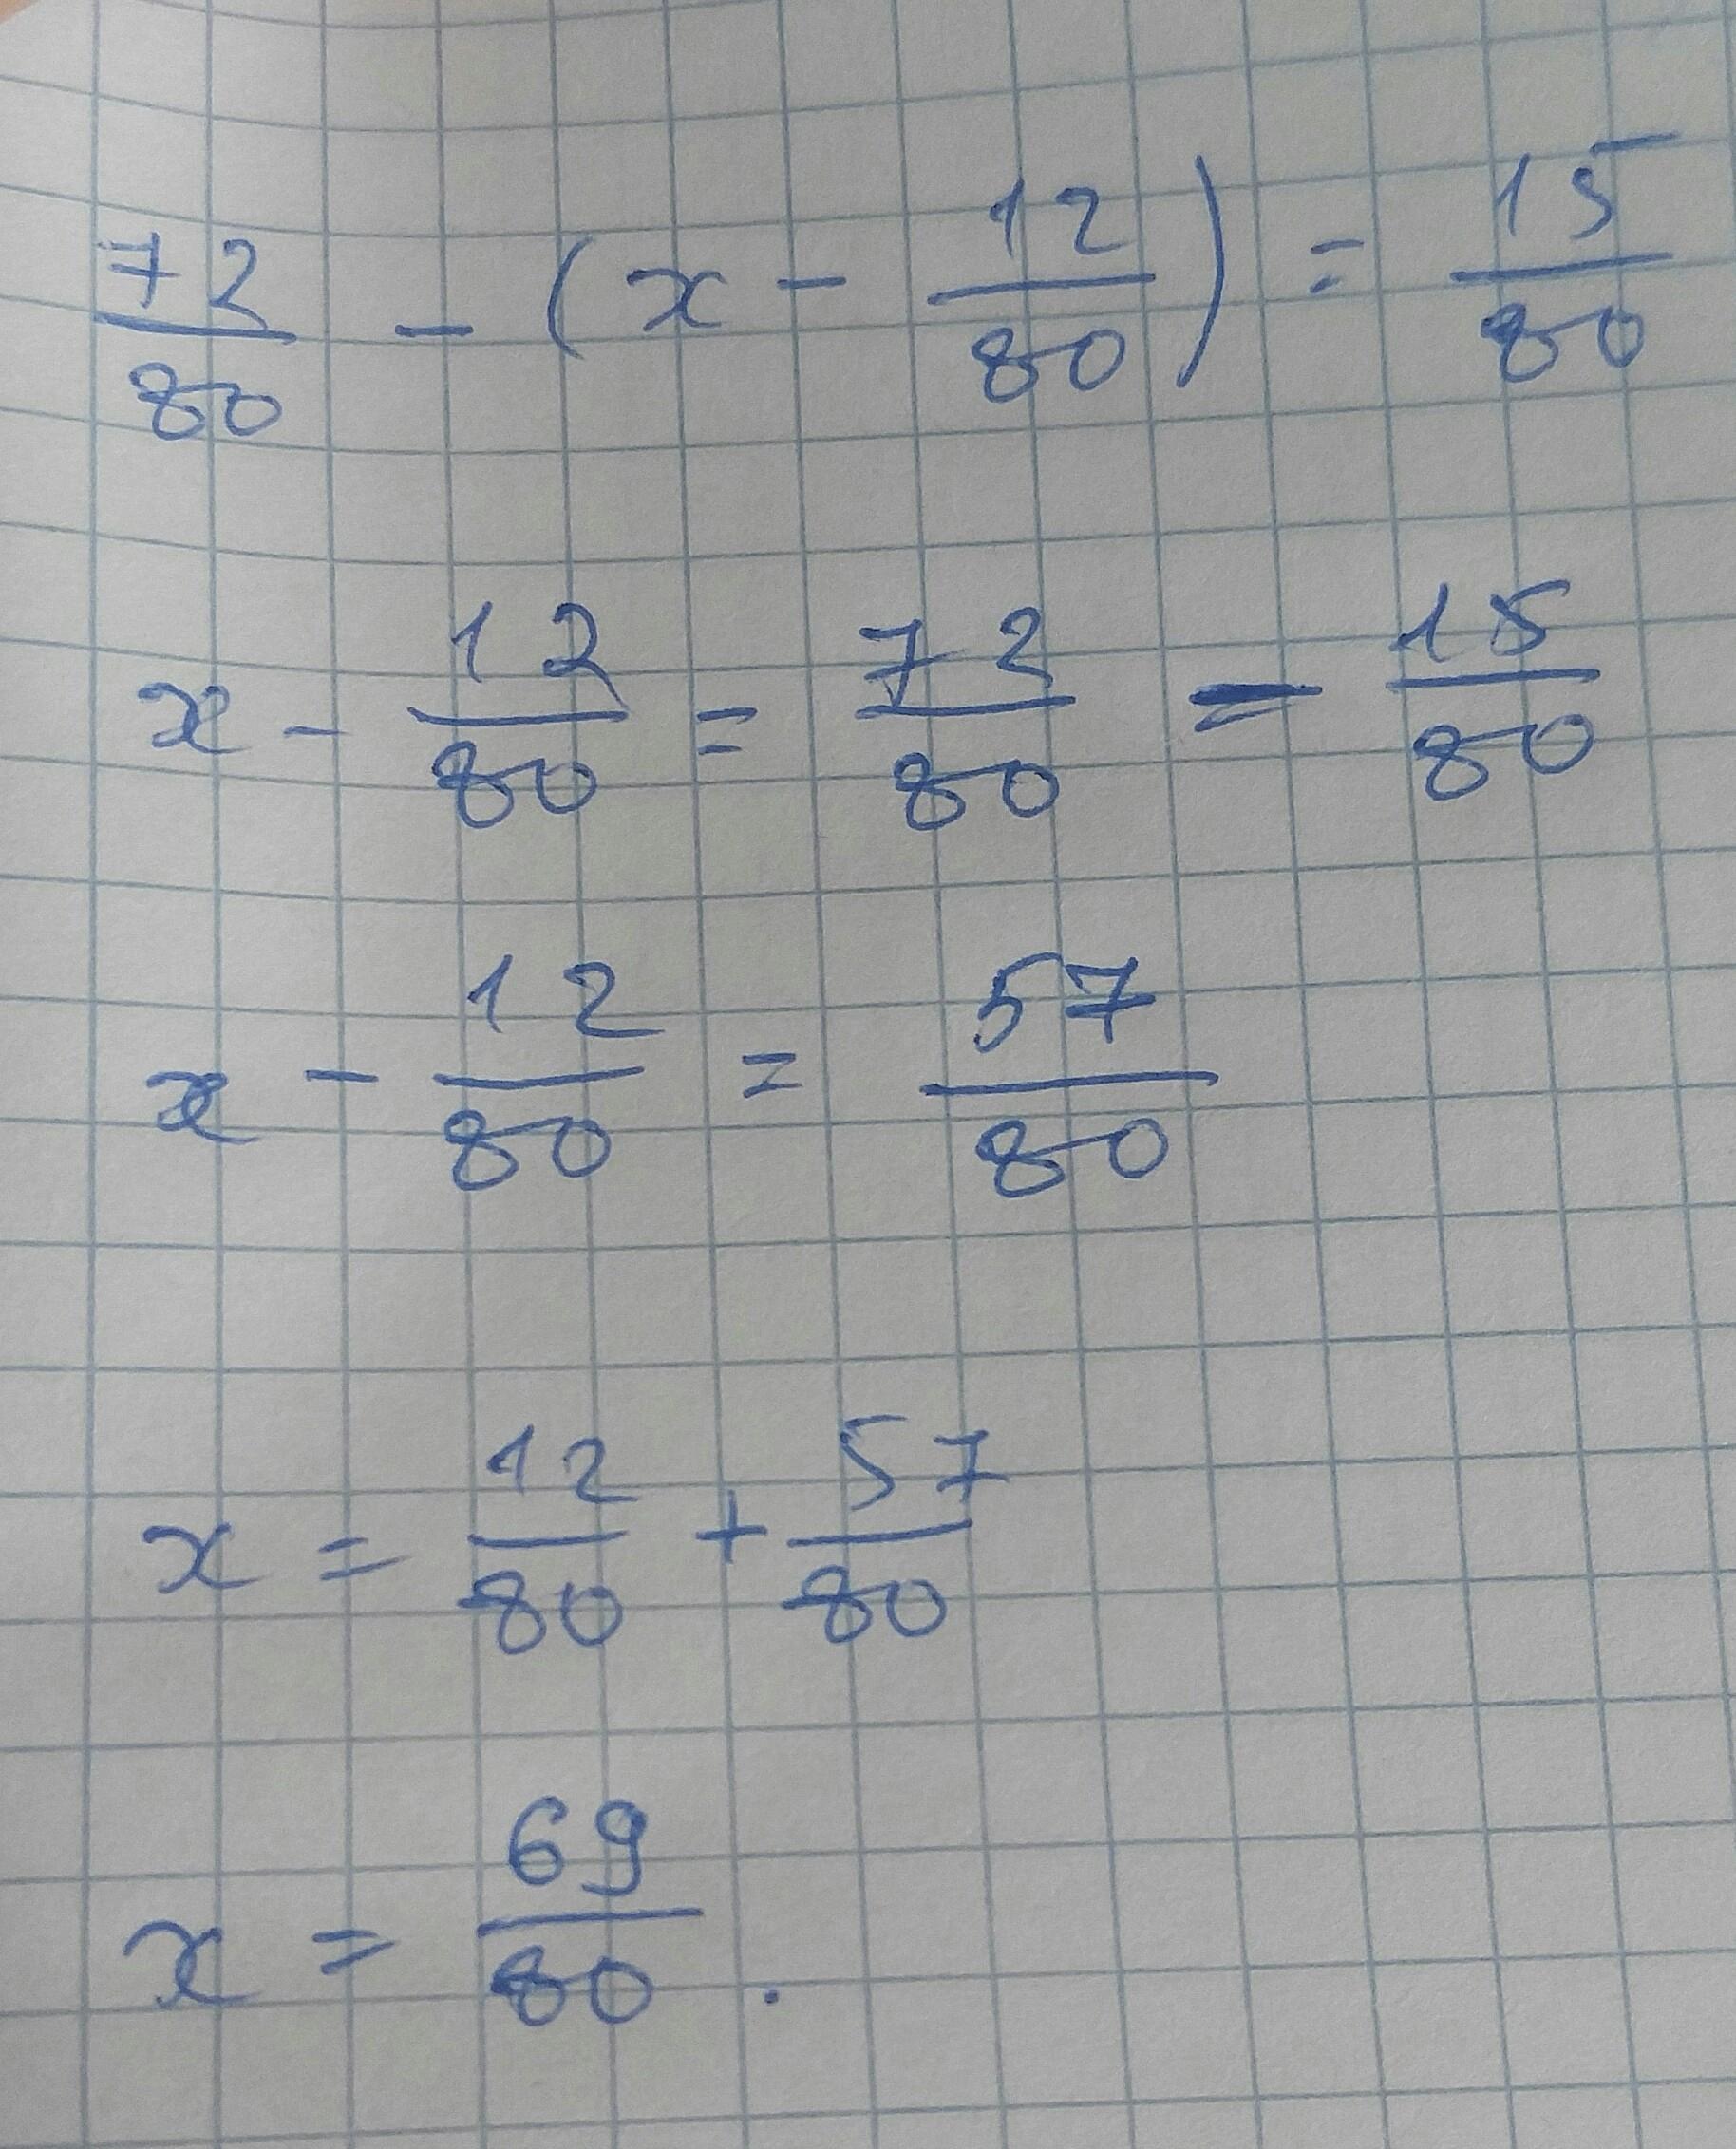 72/80 - (x - 12/80) = 15/80
x - 12/80 = 72/80 - 15/80
x - 12/80 = 57/80
x = 12/80 + 57/80
x = 69/80 .